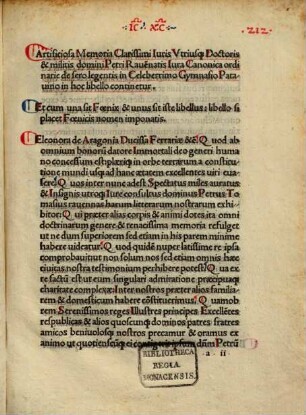 IC XC
212
Artificiosa Memoria Clarissimi Iuris Vtriusq; Doctoris
& militis domini Petri Rauēnatis Iura Canonica ordi
narie de sero legentis in Celeberrimo Gymnasio Pata
uino in hoc libello continetur.
Et cum vna sit Foenix & vnus sit iste libellus: libello si
placet Foenicis nomen imponatis.
Eleonora de Aragonia Ducissa Ferrariæ &c̄. Quod ab
omnium bonorū datore Immortali deo generi huma
no concessum est: plæriq; in orbe terrarum a constitu
tione mundi vsq; ad hanc ætatem excellentes viri eua
sere. Quos inter nunc adest Spectatus miles auratus
& Insignis vtroq; Iure consultus dominus Petrus To
masius rauennas harum litterarum nostrarum exhi
bitor. Qui præter alias corpis & animi dotes ita omni
doctrinarum genere & tenacissima memoria refulget
ut ne dum superiorem sed etiam in his parem minime
habere uideatur. Quod quidē nuper latissime re ipsa
comprobauit non solum nos sed etiam omnis hæc
ciuitas nostra testimonium perhibere potest. Qua ex
re factū est ut eum singulari admiratione præcipuaq;
charitate complexi Inter nostros præter alios familia
rē & domesticum habere cōstituerimus. Quamob
rem Serenissimos reges Illustres principes Excellētes
respublicas & alios quoscunq; dominos patres fratres
amicos beniuolosq; nostros precamur & oramus ex
animo ut quotienscūq; ei contigerit ipsum dnm̄ Petrū
a ii
BIBLIOTHECA
REGIA
MONACENSIS.